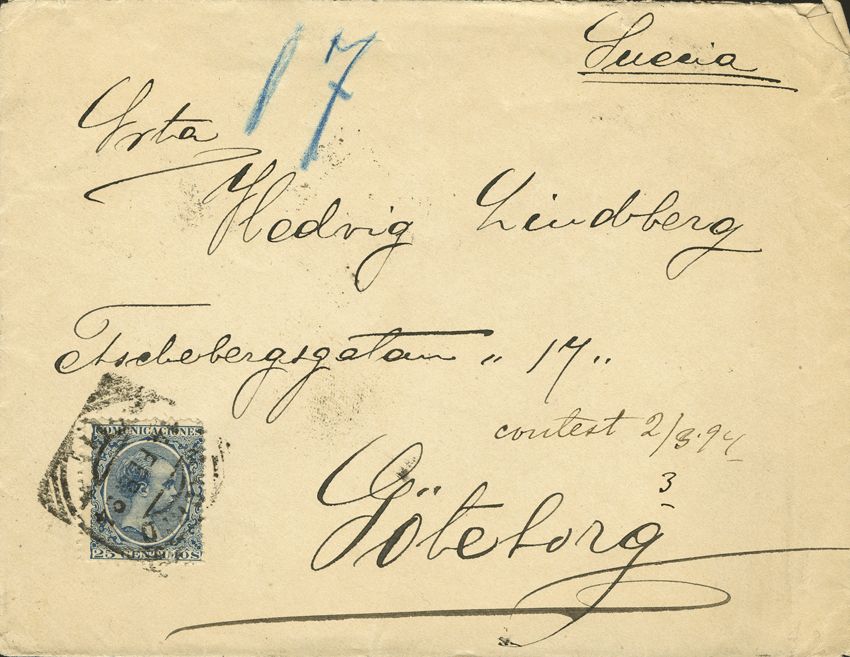 Suecia
17
Srta
Hedvig Lindberg
Tschebergsgatan „ 17 „
contest 2/3.94
Göteborg
3
COMUNICACIONES
25 CENTIMOS